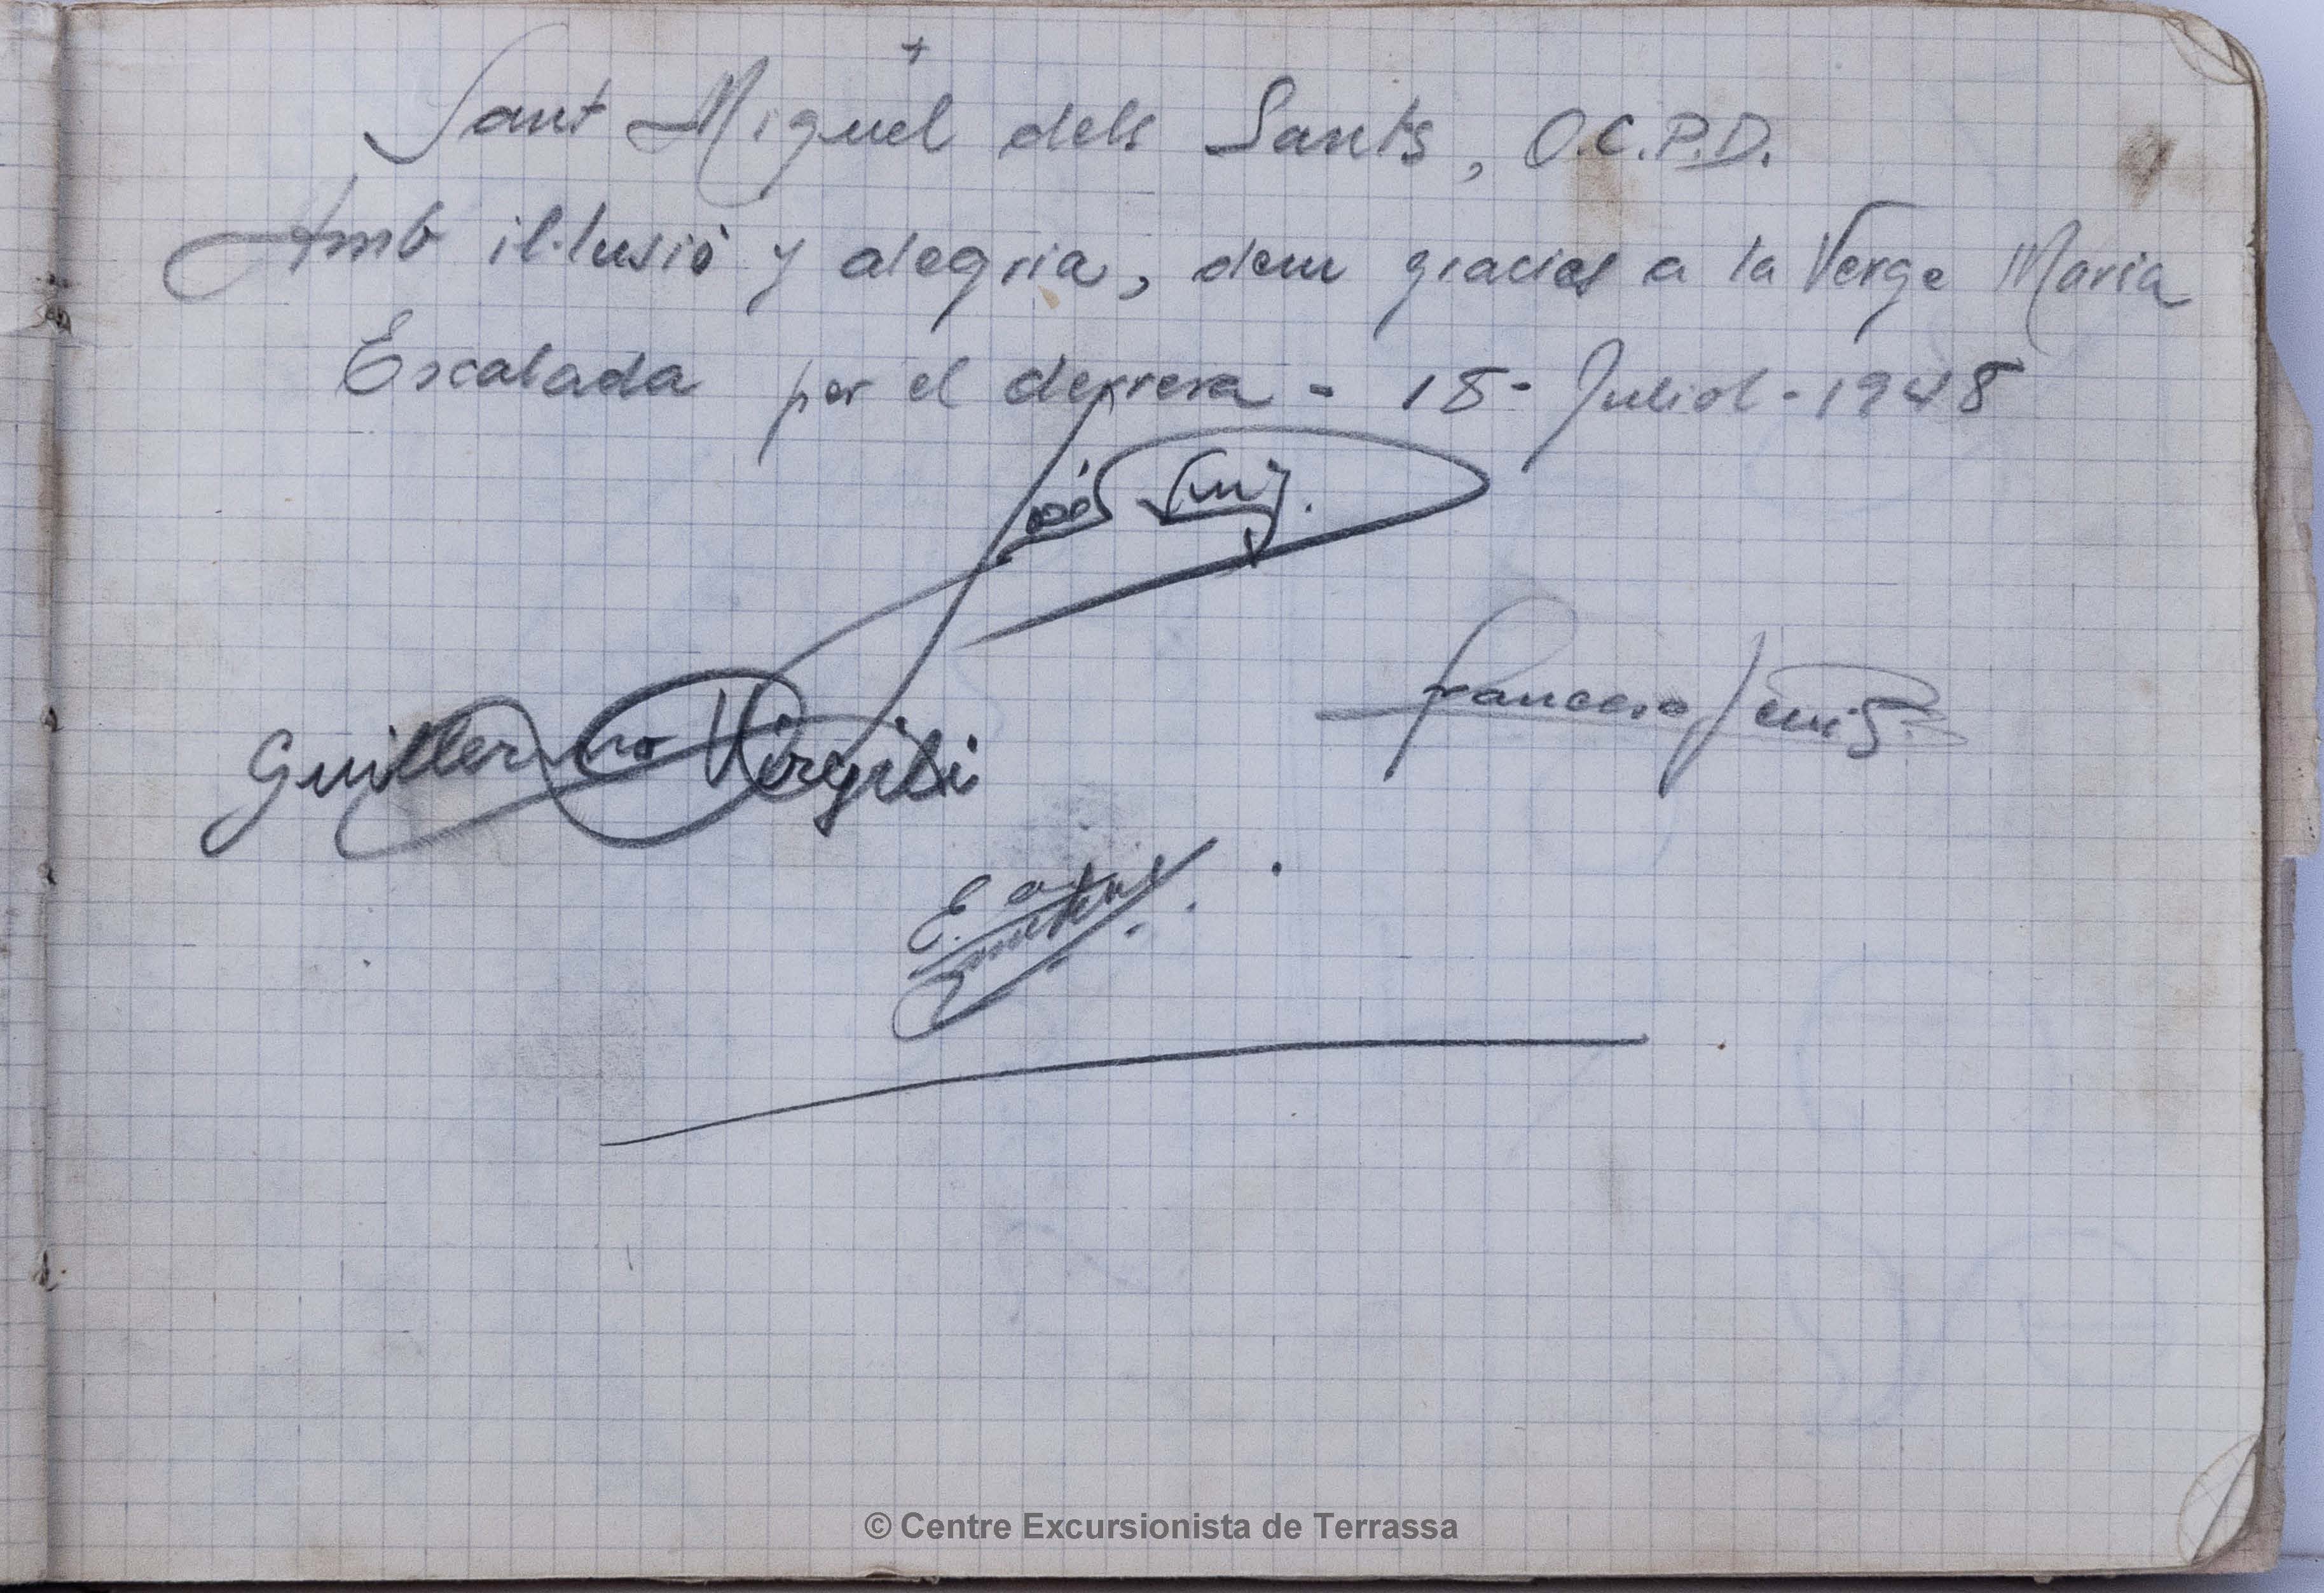 +
Sant Miguel dels Sants, O.C.P.D.
Amb il·lusió y alegria, dem gracies a la Verge Maria
Escalada per el derrera - 18 - Juliol - 1948
José
Guillermo Virgili
Francesc
E.
© Centre Excursionista de Terrassa